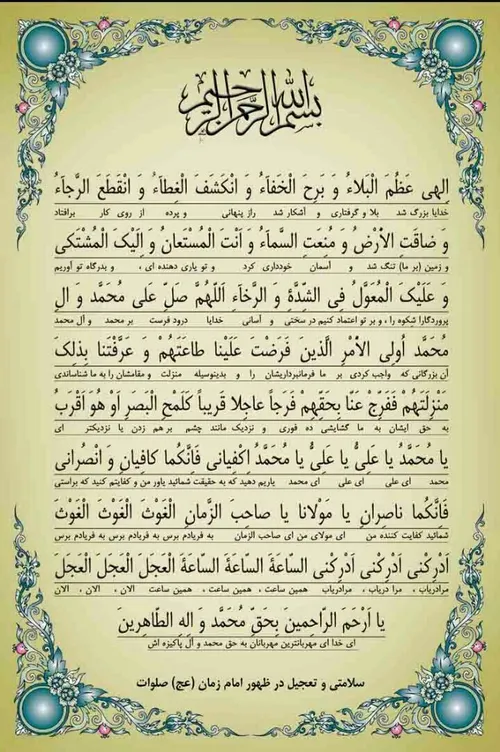 بسم الله الرحمن الرحیم
اِلهی عَظُمَ الْبَلاءُ وَ بَرِحَ الْخَفاَّءُ وَ انْکَشَفَ الْغِطاَّءُ وَ انْقَطَعَ الرَّجاَّءُ
خدایا بزرگ شد بلا و گرفتاری و آشکار شد راز پنهانی و پرده از روی کار برافتاد
وَ ضاقَتِ الاْرْضُ وَ مُنِعَتِ السَّماَّءُ وَ اَنْتَ الْمُسْتَعانُ وَ اِلَیْکَ الْمُشْتَکی
و زمین (بر ما) تنگ شد و آسمان خودداری کرد و تو یاری دهنده ای ، و بدرگاه تو آوریم
وَ عَلَیْکَ الْمُعَوَّلُ فِی الشِّدَّةِ وَ الرَّخاَّءِ اَللّهُمَّ صَلِّ عَلی مُحَمَّد وَ الِ
پروردگارا شِکوه را ، و بر تو اعتماد کنیم در سختی و آسانی خدایا درود فرست بر محمد و آل محمد
مُحَمَّد اُولِی الاْمْرِ الَّذینَ فَرَضْتَ عَلَیْنا طاعَتَهُمْ وَ عَرَّفْتَنا بِذلِکَ
آن بزرگانی که واجب کردی بر ما فرمانبرداریشان را و بدینوسیله منزلت و مقامشان را به ما شناساندی
مَنْزِلَتَهُمْ فَفَرِّجْ عَنّا بِحَقِّهِمْ فَرَجاً عاجِلا قَریباً کَلَمْحِ الْبَصَرِ اَوْ هُوَ اَقْرَبُ
به حق ایشان به ما گشایشی ده فوری و نزدیک مانند چشم بر هم زدن یا نزدیکتر ای
یا مُحَمَّدُ یا عَلِیُّ یا عَلِیُّ یا مُحَمَّدُ اِکْفِیانی فَاِنَّکُما کافِیانِ وَ انْصُرانی
محمد ای علی ای علی ای محمد یاریم دهید که به حقیقت شمائید یاور من و کفایتم کنید که براستی
فَاِنَّکُما ناصِرانِ یا مَوْلانا یا صاحِبَ الزَّمانِ الْغَوْثَ الْغَوْثَ الْغَوْثَ
شمائید کفایت کننده من ای مولای من ای صاحب الزمان به فریادم برس به فریادم برس به فریادم برس
اَدْرِکْنی اَدْرِکْنی اَدْرِکْنی السّاعَةَ السّاعَةَ السّاعَةَ الْعَجَلَ الْعَجَلَ الْعَجَلَ
مرادریاب ، مرا دریاب ، مرادریاب همین ساعت ، همین ساعت ، همین ساعت الان ، الان ، الان
یا اَرْحَمَ الرّاحِمینَ بِحَقِّ مُحَمَّد وَ الِهِ الطّاهِرینَ
ای خدا ای مهربانترین مهربانان به حق محمد و آل پاکیزه اش
سلامتی و تعجیل در ظهور امام زمان (عج) صلوات